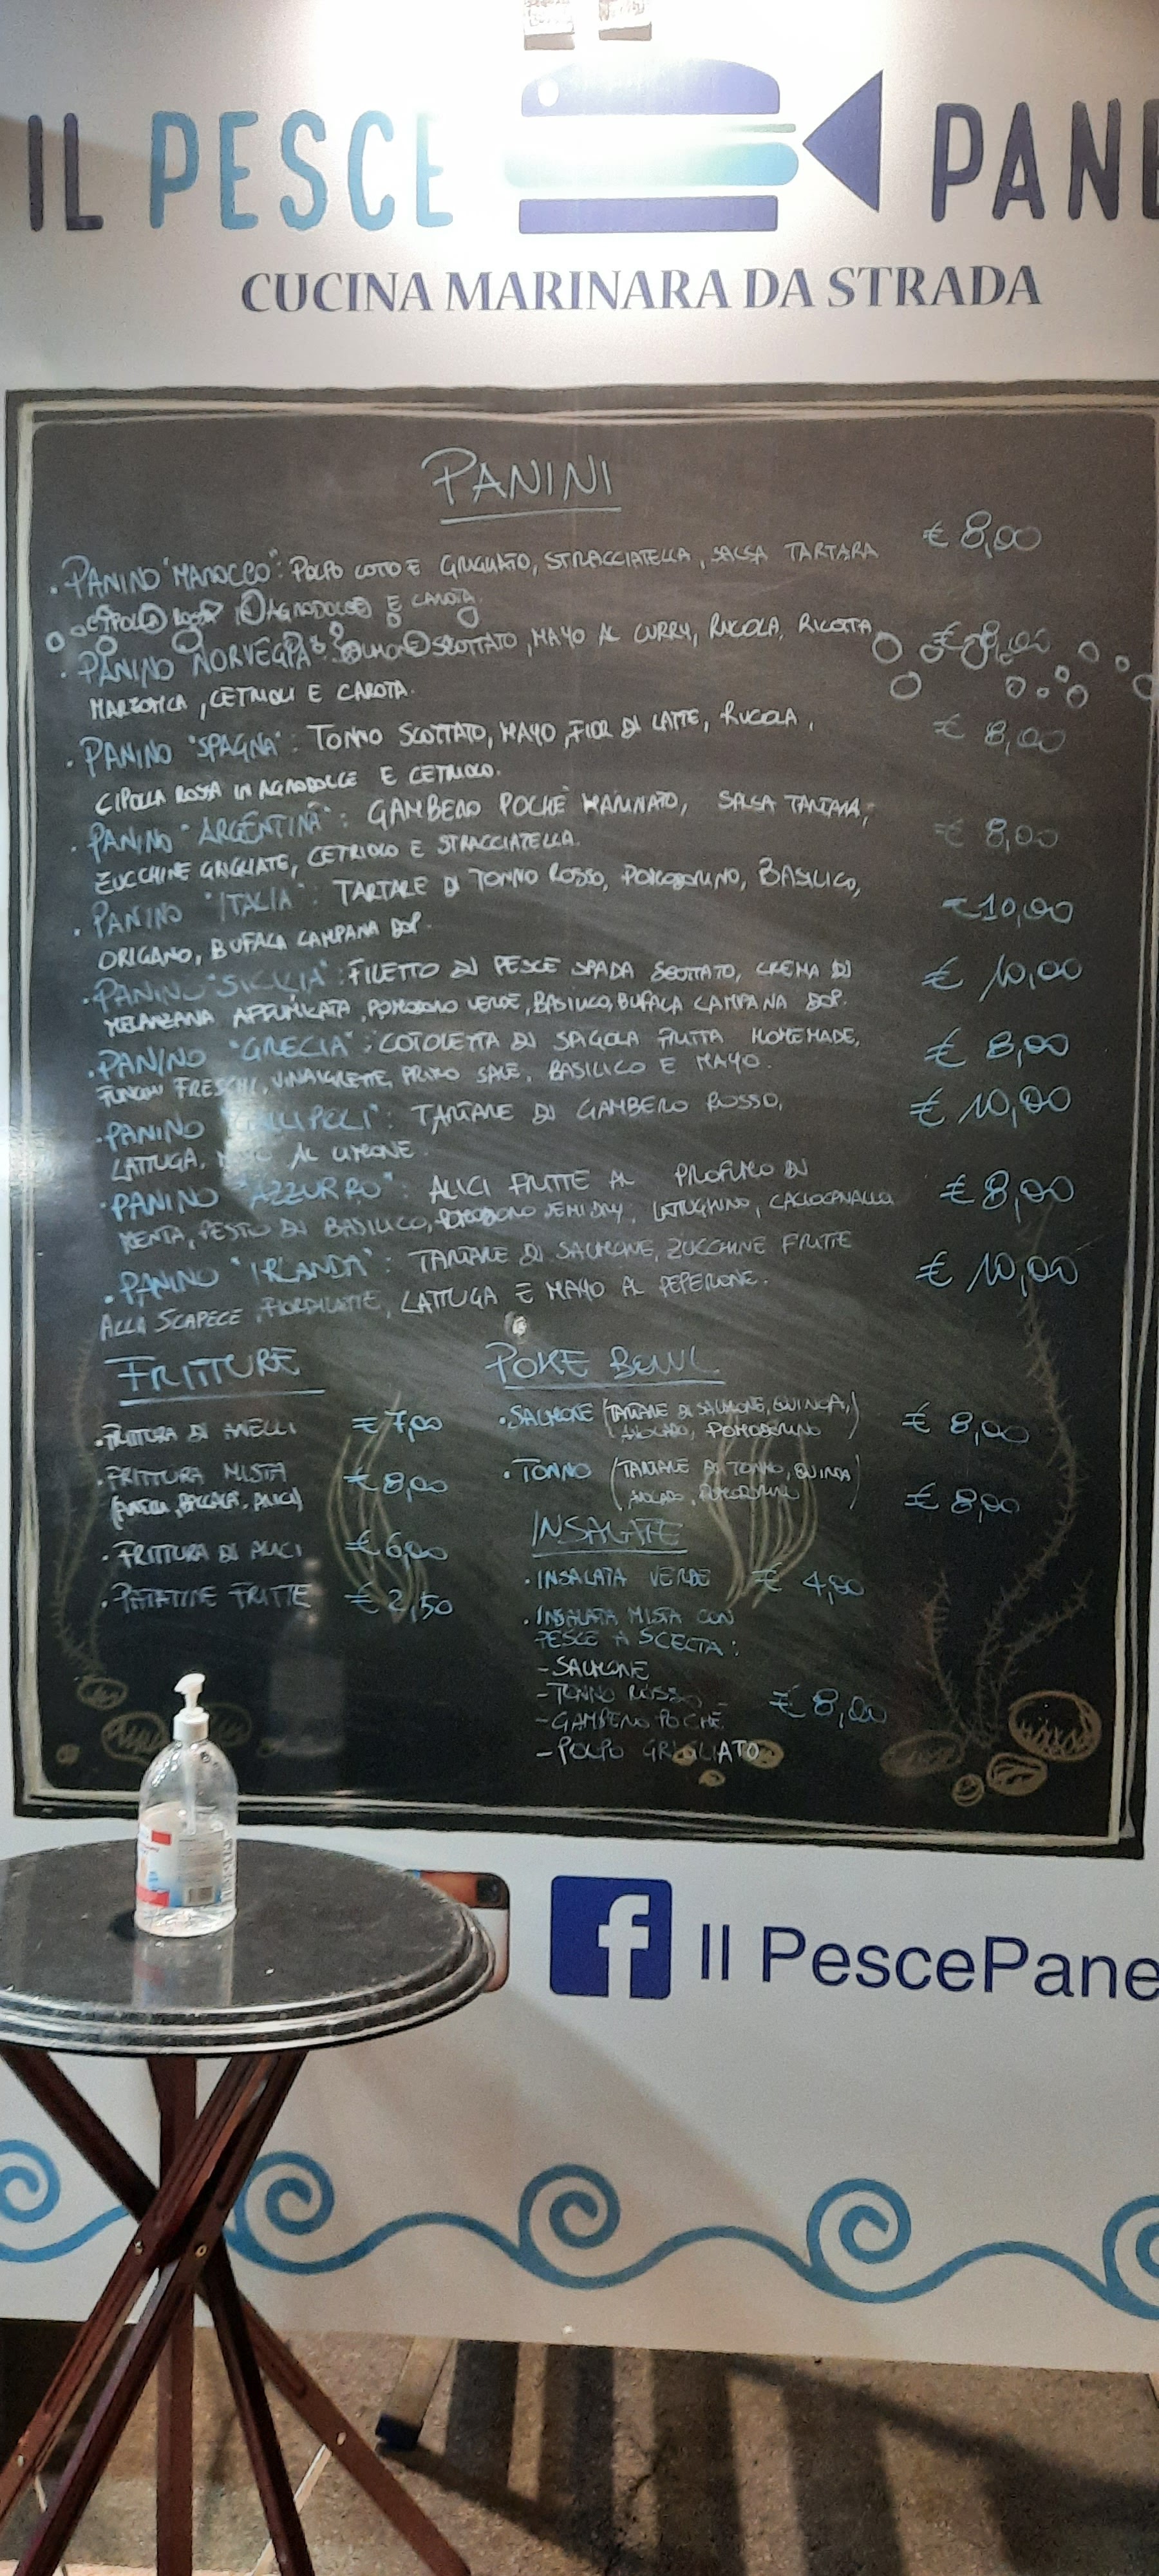 IL PESCE PANE
CUCINA MARINARA DA STRADA
PANINI
• PANINO "MAROCCO": POLPO COTTO E GRIGLIATO, STRACCIATELLA, SALSA TARTARA € 8,00
CIPOLLA ROSSA IN AGRODOLCE E CAROTA.
• PANINO NORVEGIA: SALMONE SCOTTATO, MAYO AL CURRY, RUCOLA, RICOTTA € 8,00
MARZOTICA, CETRIOLI E CAROTA.
• PANINO "SPAGNA": TONNO SCOTTATO, MAYO, FIOR DI LATTE, RUCOLA, € 8,00
CIPOLLA ROSSA IN AGRODOLCE E CETRIOLO.
• PANINO "ARGENTINA": GAMBERO POCHÈ MARINATO, SALSA TARTARA, € 8,00
ZUCCHINE GRIGLIATE, CETRIOLO E STRACCIATELLA.
• PANINO "ITALIA": TARTARE DI TONNO ROSSO, POMODORINO, BASILICO, €10,00
ORIGANO, BUFALA CAMPANA DOP.
• PANINO "SICILIA": FILETTO DI PESCE SPADA SCOTTATO, CREMA DI € 10,00
MELANZANA AFFUMICATA, POMODORO VERDE, BASILICO, BUFALA CAMPANA DOP.
• PANINO "GRECIA": COTOLETTA DI SPIGOLA FRITTA HOMEMADE, € 8,00
FUNGHI FRESCHI, VINAIGRETTE, PRIMO SALE, BASILICO E MAYO.
• PANINO LLIPOLI": TARTARE DI GAMBERO ROSSO, € 10,00
LATTUGA, AL LIMONE.
• PANINO "AZZURRO": ALICI FRITTE AL PROFUMO DI € 8,00
MENTA, PESTO DI BASILICO, POMODORO SEMIDRY, LATTUGHINO, CACIOCAVALLO
• PANINO "IRLANDA": TARTARE DI SALMONE, ZUCCHINE FRITTE € 10,00
ALLA SCAPECE, FIORDILATTE, LATTUGA E MAYO AL PEPERONE.
FRITTURE
• FRITTURA DI ANELLI € 7,00
• FRITTURA MISTA € 8,00
(ANELLI, BACCALÀ, ALICI)
• FRITTURA DI ALICI € 6,00
• PATATINE FRITTE € 2,50
POKE BOWL
• SALMONE (TARTARE DI SALMONE, QUINOA, € 8,00
AVOCADO, POMODORINO)
• TONNO (TARTARE DI TONNO, QUINOA
AVOCADO, POMODORINI) € 8,00
INSALATE
• INSALATA VERDE € 4,00
• INSALATA MISTA CON
PESCE A SCELTA:
- SALMONE
- TONNO ROSSO - € 8,00
- GAMBERO POCHÈ
- POLPO GRIGLIATO
f Il PescePane